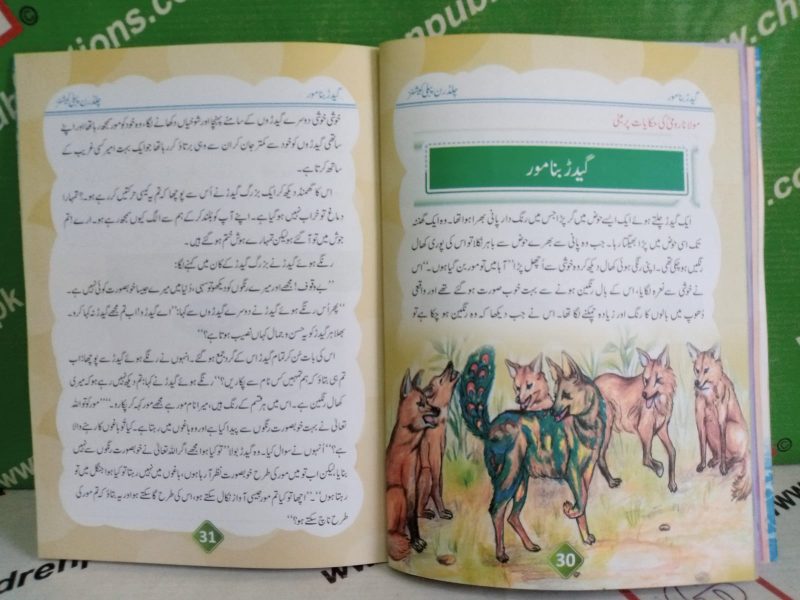 گیدڑ بنا مور
چلڈرن پبلی کیشنز
مولانا رومیؒ کی حکایات پر مبنی
گیدڑ بنا مور
ایک گیدڑ چلتے ہوئے ایک ایسے حوض میں گر پڑا جس میں رنگ دار پانی بھرا ہوا تھا۔ وہ ایک گھنٹہ
تک اسی حوض میں پڑا بھیگتا رہا۔ جب وہ پانی سے بھرے حوض سے باہر نکلا تو اس کی پوری کھال
رنگین ہو چکی تھی۔ اپنی رنگی ہوئی کھال دیکھ کر وہ خوشی سے اُچھل پڑا ”آہا میں تو مور بن گیا ہوں۔“ اس
نے خوشی سے نعرہ لگایا، اس کے بال رنگین ہونے سے بہت خوب صورت ہو گئے تھے اور واقعی
دُھوپ میں بالوں کا رنگ اور زیادہ چمکنے لگا تھا۔ اس نے جب دیکھا کہ وہ رنگین ہو چکا ہے تو
30
گیدڑ بنا مور
چلڈرن پبلی کیشنز
خوشی خوشی دوسرے گیدڑوں کے سامنے پہنچا اور شوخیاں دکھانے لگا، وہ خود کو مور سمجھ رہا تھا اور اپنے
ساتھی گیدڑوں کو خود سے کمتر جان کر ان سے وہی برتاؤ کر رہا تھا جو ایک بہت امیر کسی غریب کے
ساتھ کرتا ہے۔
اس کا گھمنڈ دیکھ کر ایک بزرگ گیدڑ نے اُس سے پوچھا کہ تم یہ کیسی حرکتیں کر رہے ہو۔؟ تمہارا
دماغ تو خراب نہیں ہو گیا ہے۔ اپنے آپ کو بلند کر کے ہم سے الگ کیوں سمجھ رہے ہو۔ ارے تم
جوش میں تو آ گئے ہو لیکن تمہارے ہوش ختم ہو گئے ہیں۔
رنگے ہوئے گیدڑ نے بزرگ گیدڑ کے کان میں کہنے لگا:
”بے وقوف! مجھے اور میرے رنگوں کو دیکھو تو سہی، دُنیا میں میرے جیسا خوبصورت کوئی نہیں ہے۔
”پھر اُس رنگے ہوئے گیدڑ نے دوسرے گیدڑوں سے کہا: ”اے گیدڑو! اب تم مجھے گیدڑ نہ کہا کرو۔
بھلا ہر گیدڑ کو یہ حسن و جمال کہاں نصیب ہوتا ہے؟“
اس کی بات سُن کر تمام گیدڑ اس کے گرد جمع ہو گئے۔ انہوں نے رنگے ہوئے گیدڑ سے پوچھا: اب
تم ہی بتاؤ کہ ہم تمہیں کس نام سے پکاریں؟“ رنگے ہوئے گیدڑ نے کہا: تم دیکھ نہیں رہے ہو کہ میری
کھال رنگین ہے۔ اس میں ہر قسم کے رنگ ہیں، میرا نام مور ہے مجھے مور کہہ کر پکارو۔“ ”مور کو تو اللہ
تعالیٰ نے خوبصورت رنگوں سے پیدا کیا ہے اور وہ باغوں میں رہتا ہے۔ کیا تُو باغوں کا رہنے والا
ہے؟“ اُنہوں نے سوال کیا۔ وہ گیدڑ بولا: ”تو کیا ہوا مجھے اگر اللہ تعالیٰ نے خوبصورت رنگوں سے نہیں
بنایا، لیکن اب تو میں مور کی طرح خوبصورت نظر آ رہا ہوں، باغوں میں نہیں رہتا تو کیا ہوا جنگل میں تو
رہتا ہوں“۔ ”اچھا تو کیا تم مور جیسی آواز نکال سکتے ہو، اس کی طرح گا سکتے ہو اور یہ بتاؤ کہ تم مور کی
طرح ناچ سکتے ہو؟“
31